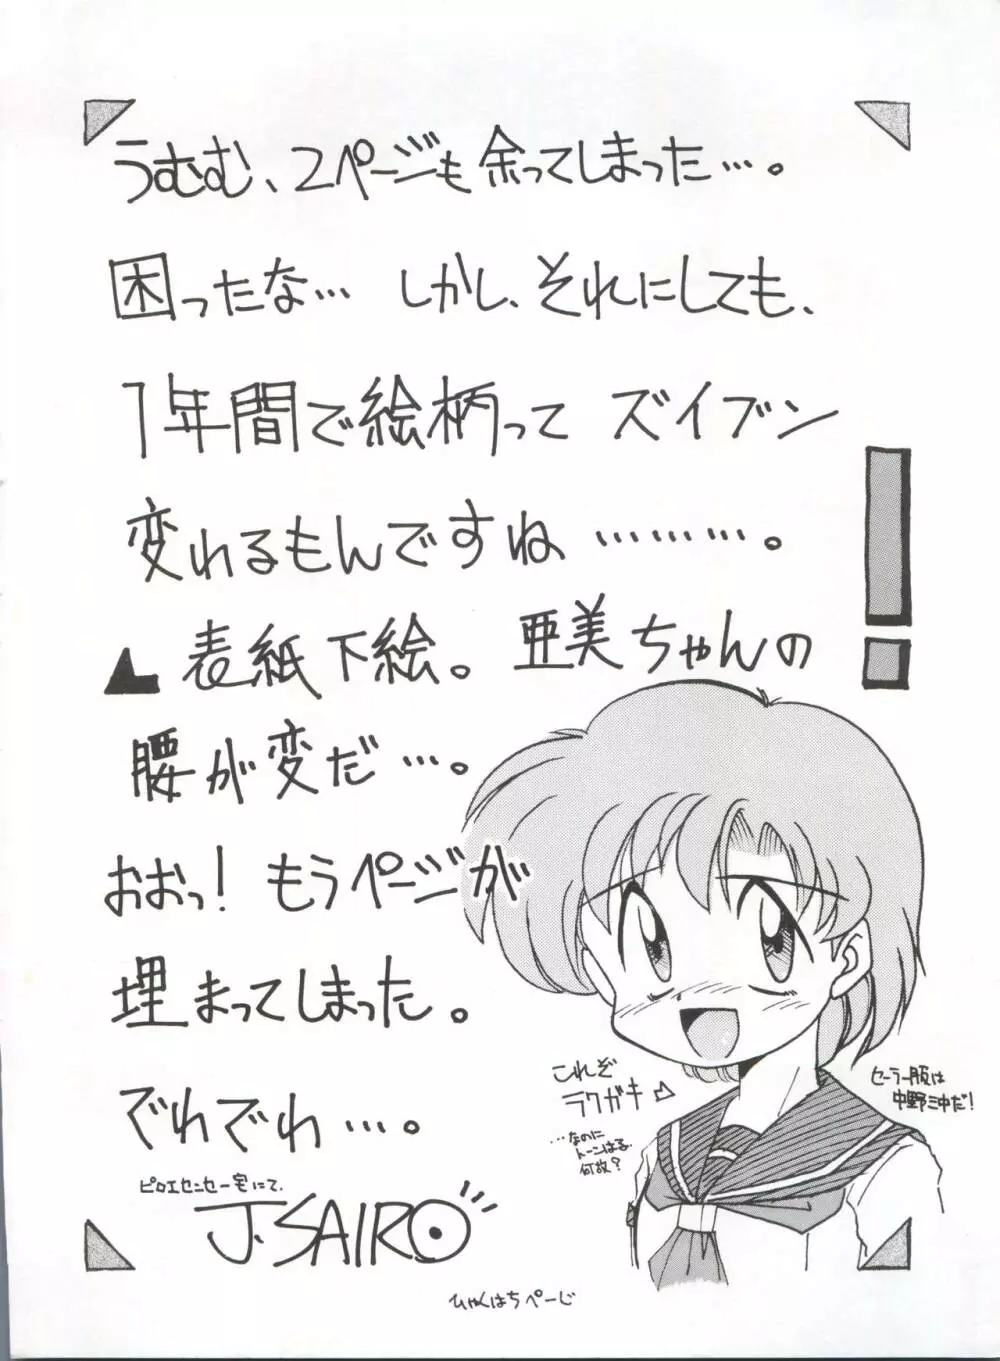 うむむ、2ページも余ってしまった…。
困ったな… しかし、それにしても、
1年間で絵柄って ズイブン
変れるもんですね………。
表紙下絵。亜美ちゃんの
腰が変だ…。
おおっ! もうページが
埋まってしまった。
でわでわ…。
ピロエセンセー宅にて.
J.SAIRO
これぞ
ラクガキ
…なのに
トーンはる.
何故?
セーラー服は
中野三中だ!
ひゃくはちぺーじ